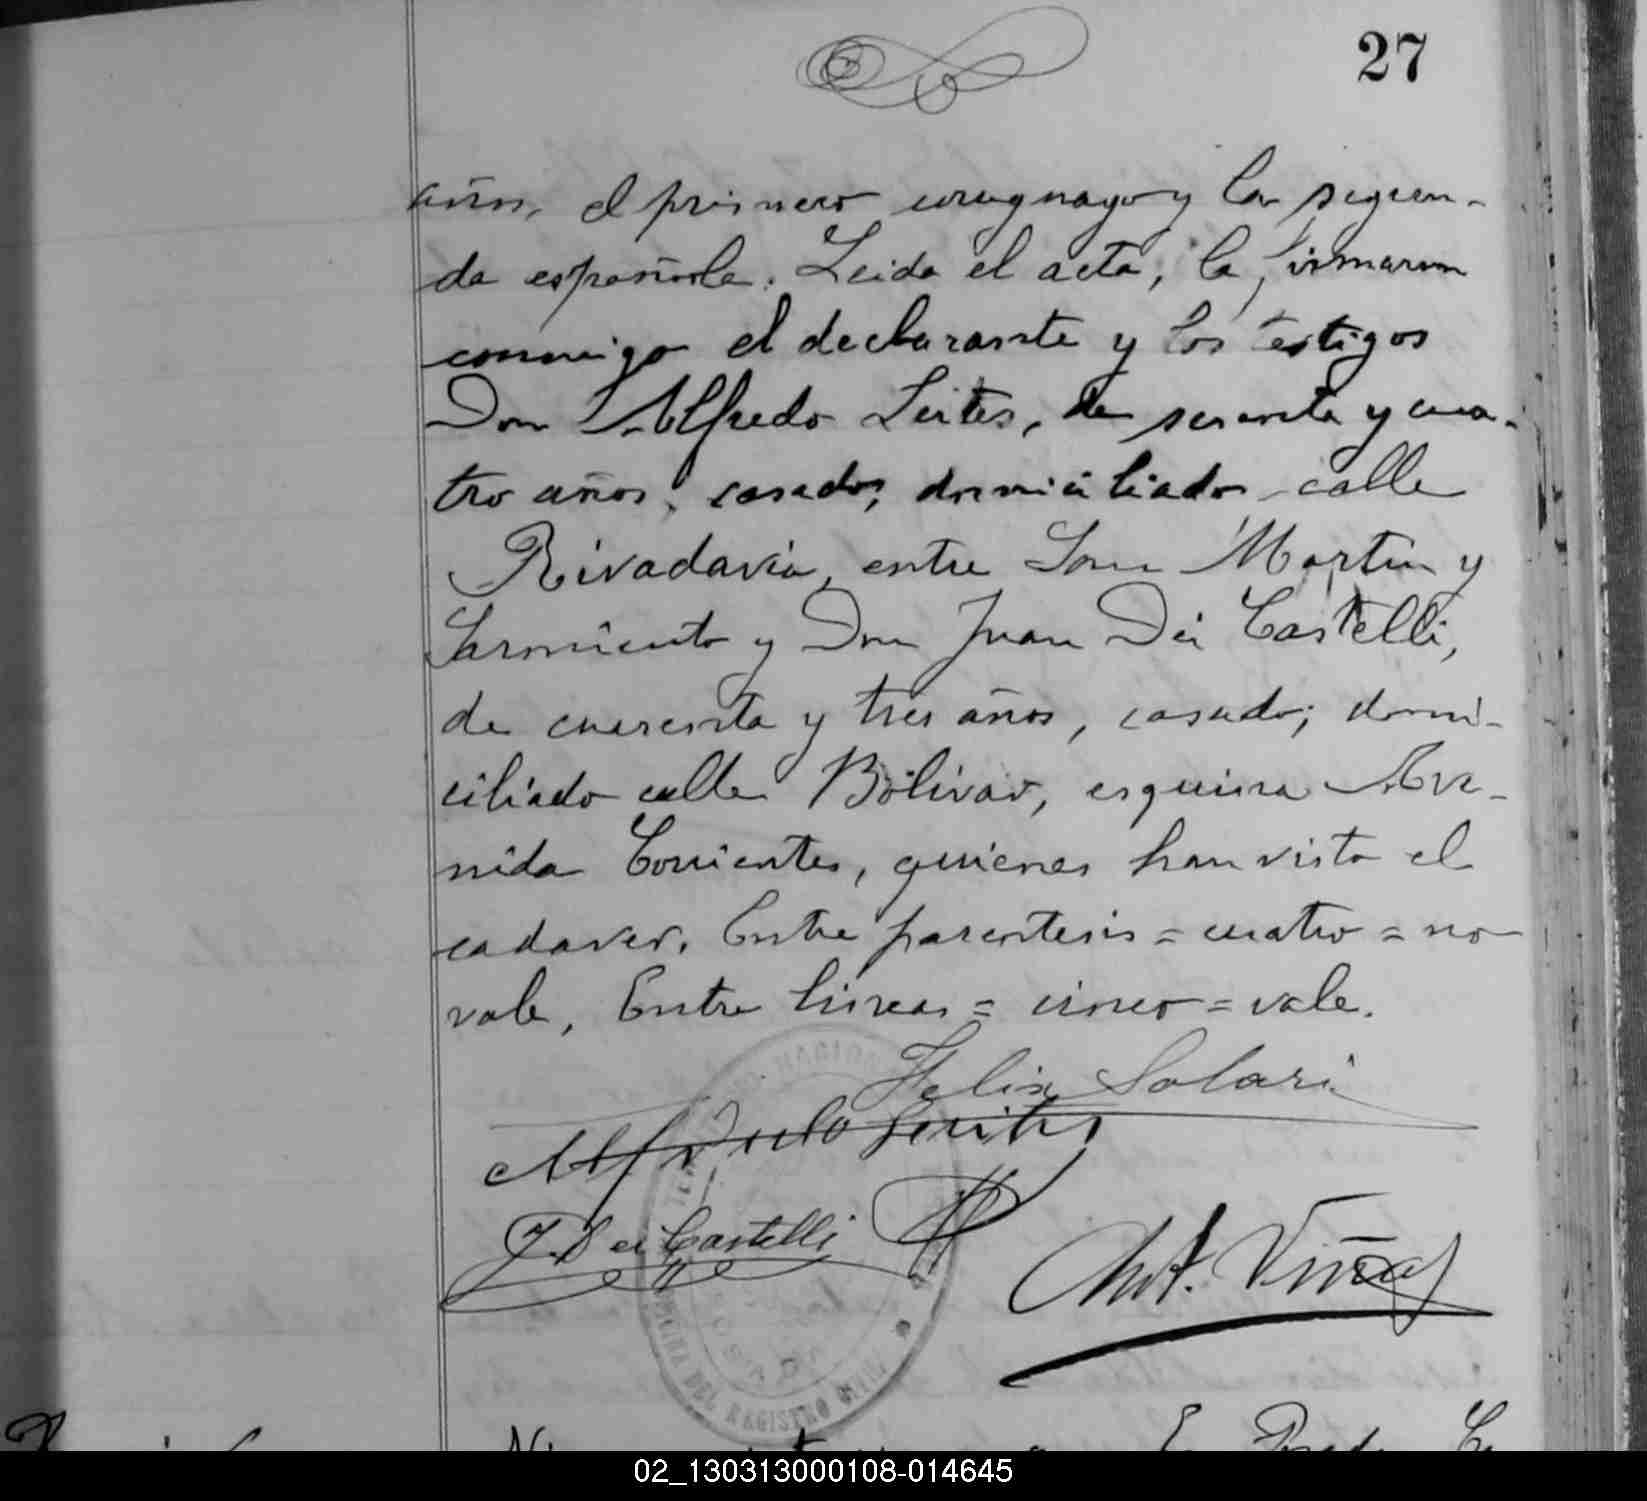 27
años, el primero uruguayo y la segun-
da española. Leida el acta, la firmaron
conmigo el declarante y los testigos
Don Alfredo Leites, de sesenta y cua-
tro años, casado, domiciliado calle
Rivadavia, entre San Martin y
Sarmiento y Don Juan Dei Castelli,
de cuarenta y tres años, casado, domi-
ciliado calle Bolivar, esquina Ave-
nida Corrientes, quienes han visto el
cadaver. Entre parentesis = cuatro = no
vale. Entre lineas = cinco = vale.
Felix Solari
Alfredo Leites
J. Dei Castelli
Ant. Viñas
OFICINA DEL REGISTRO CIVIL
POSADAS
02_130313000108-014645